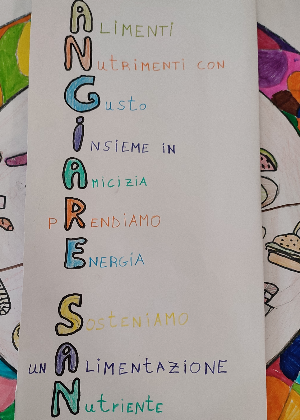 ALIMENTI
NUTRIMENTI CON
GUSTO
INSIEME IN
AMICIZIA
PRENDIAMO
ENERGIA
SOSTENIAMO
UN ALIMENTAZIONE
NUTRIENTE